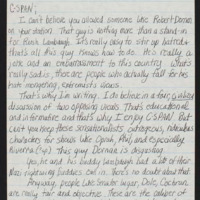 C-SPAN;
I can't believe you allowed someone like Robert Dornan
on your station. That guy is nothing more than a stand-in
for Rush Limbaugh. It's really easy to stir up hatred &
that's all this guy knows how to do. He's really a
joke and an embarrassment to this country. What's
really sad is, there are people who actually fall for his
hate mongering, extremist views.
That's why I'm writing. I do believe in a fair,
discussion of two opposing views. That's educational
and informative and that's why I enjoy C-SPAN! But
can't you keep these sensationalists outrageous, ridiculous
characters for shows like Oprah, Phil, and especially
Rivera (ugh); this guy Dornan is disgusting.
Yes, he and his buddy Limbaugh had a lot of their
right-winged buddies call in. There's no doubt about that.
Anyway, people like Senator Sugar, Dole, Cochran,
are really fair and objective. These are the caliber of